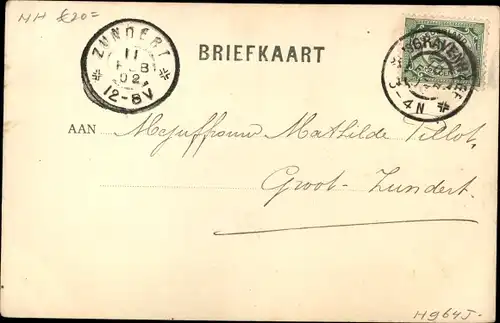 HH £20=
ZUNDERT
11
FEB
02
12-8V
BRIEFKAART
'S GRAVENHAGE
3-4N
AAN Mejuffrouw Mathilde Tillot.
Groot-Zundert.
H964J-